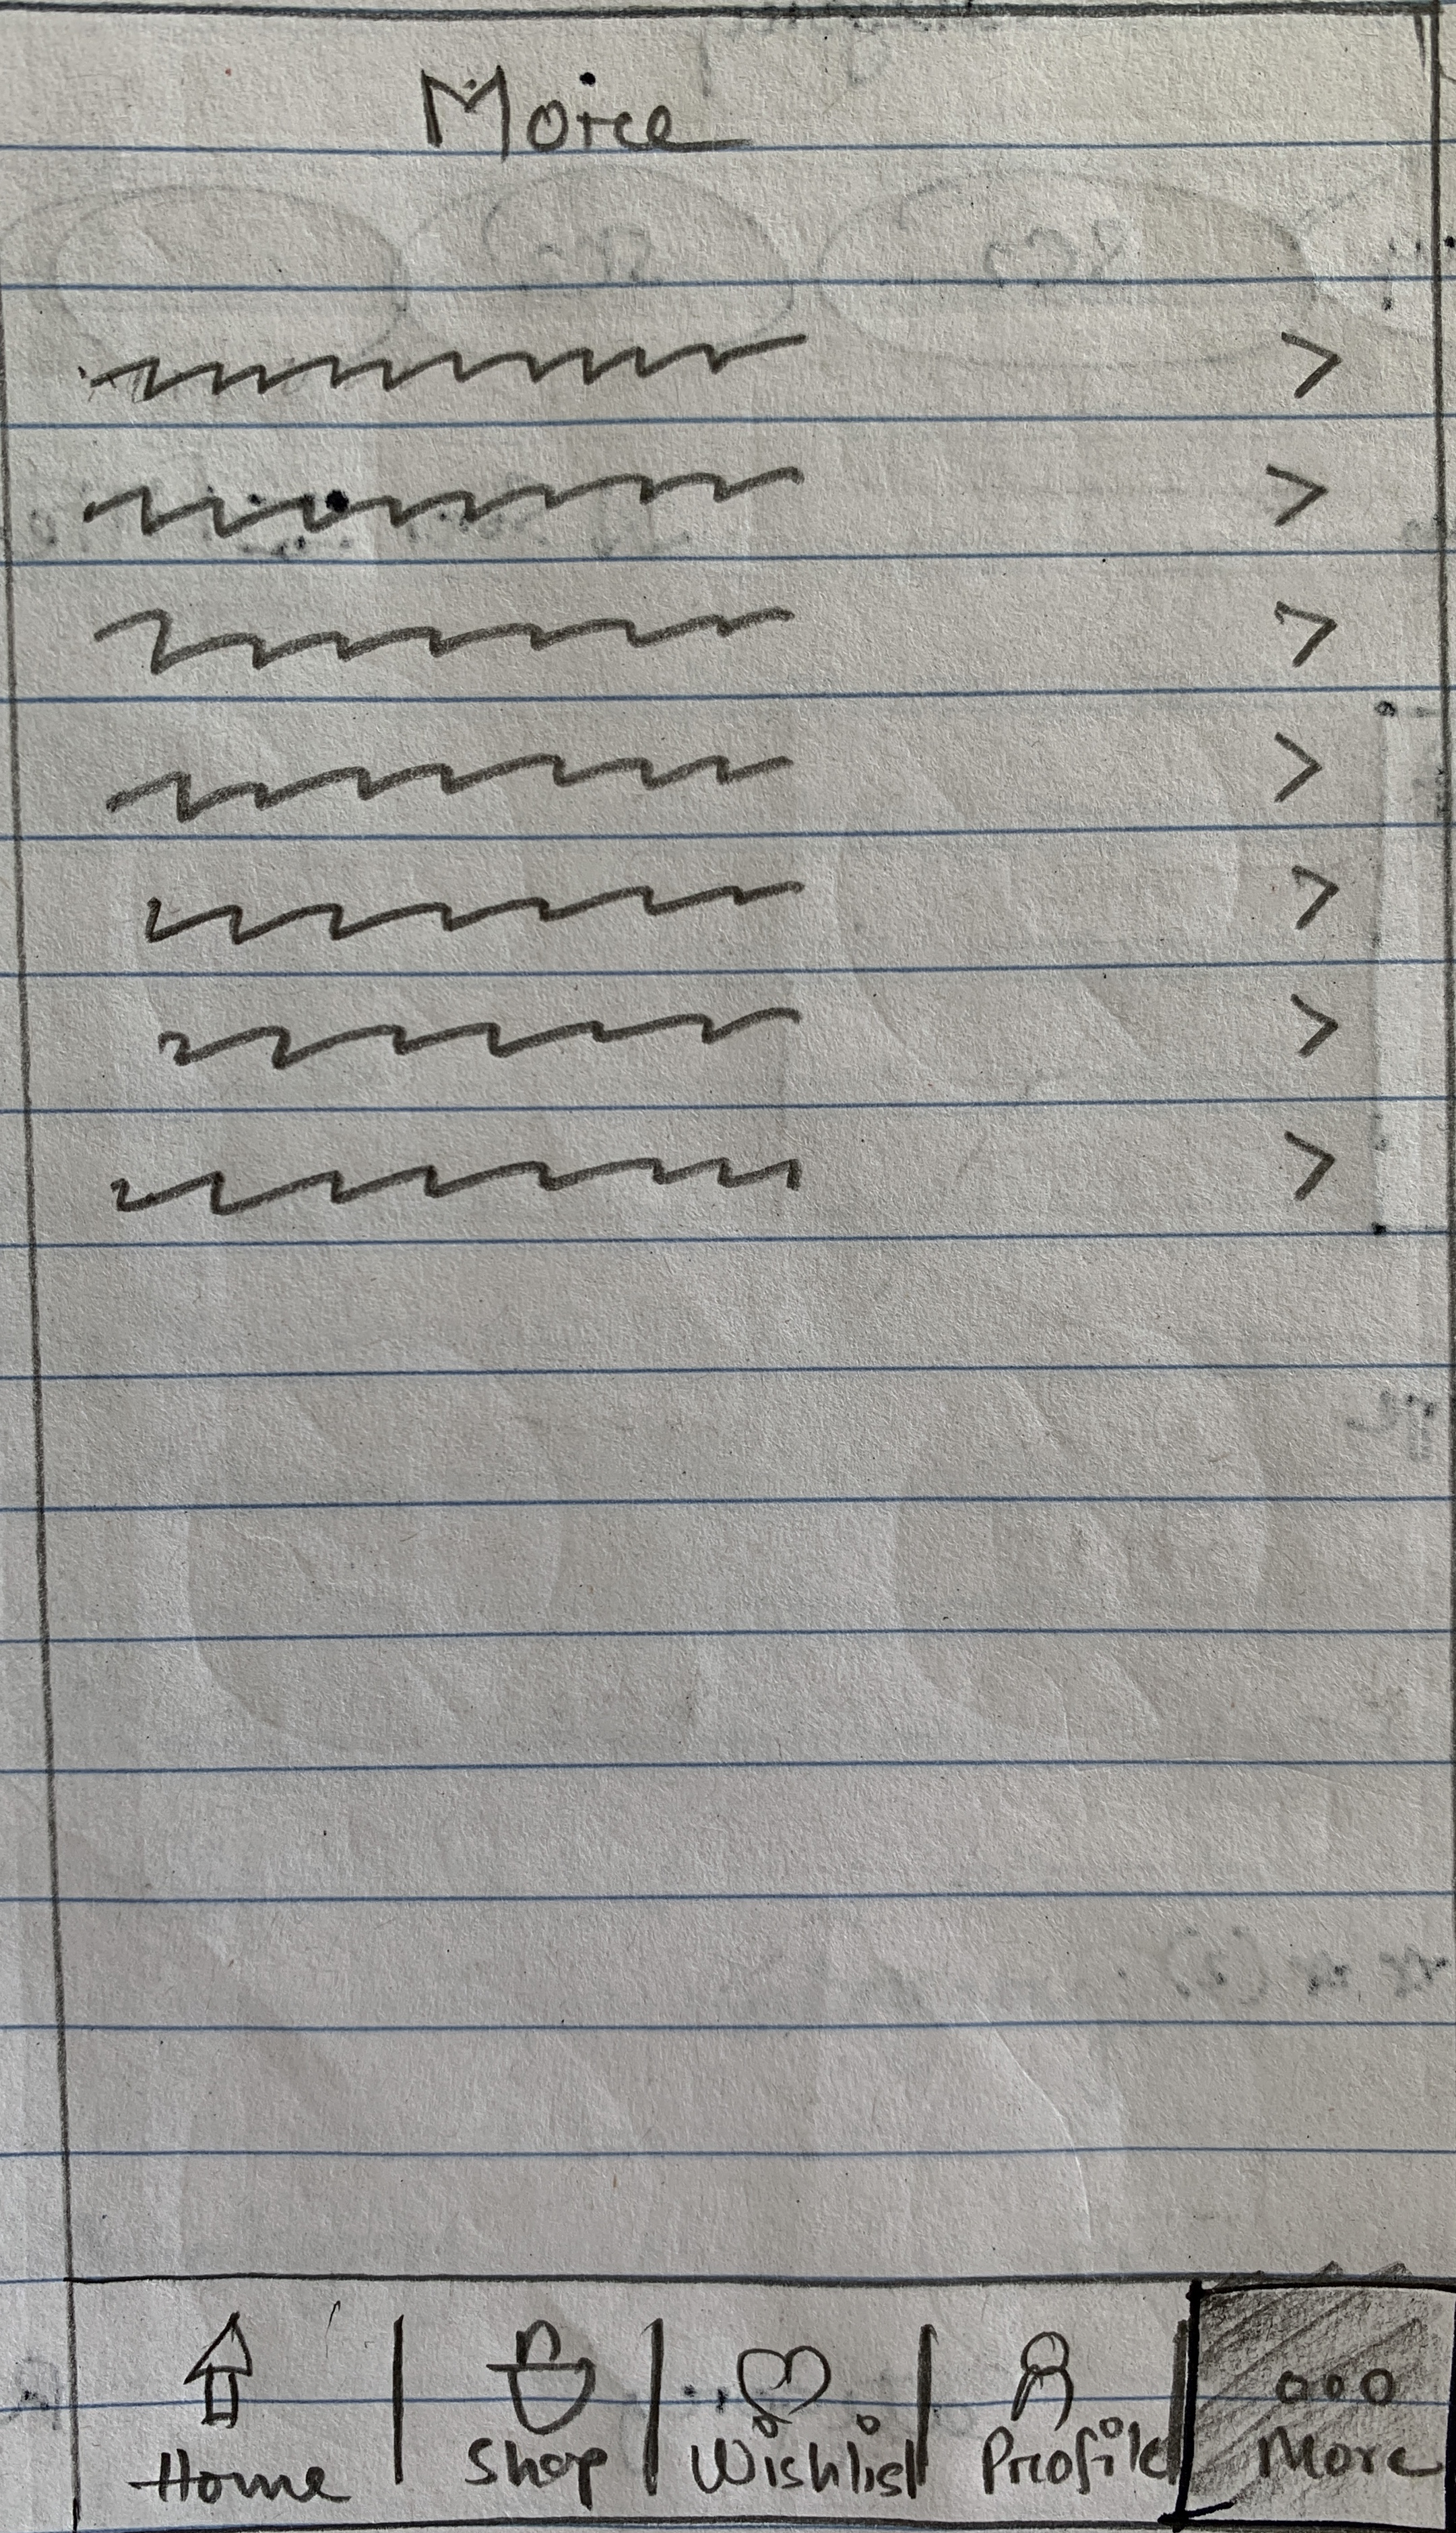 More
>
>
>
>
>
>
>
Home | Shop | Wishlist | Profile | More